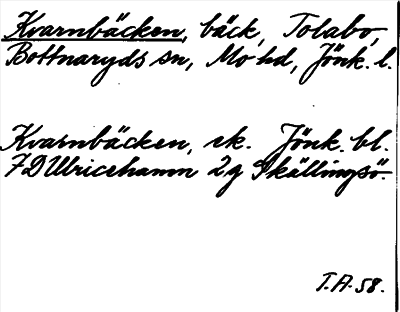 Kvarnbäcken, bäck, Tolabo,
Bottnaryds sn, Mo hd, Jönk. l.
Kvarnbäcken, ek. Jönk. bl.
7D Ulricehamn 2g Skällingsö.
T.A. 58.